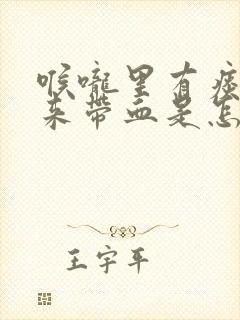 喉咙里有痰
来带血是怎
王宇平